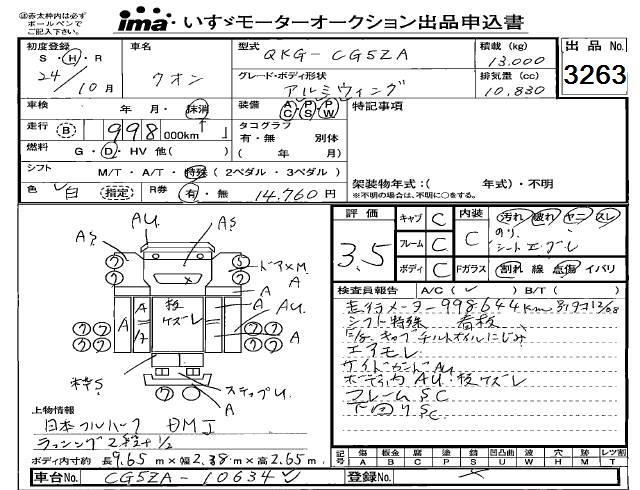 ㊟赤太枠内は必ず
ボールペンで
ご記入下さい。
ima いすゞモーターオークション出品申込書
初度登録 S・H・R 24/10月
車名 クオン
型式 QKG-CG5ZA
積載 (kg) 13,000
出品 No. 3263
グレード・ボディ形状 アルミウイング
排気量 (cc) 10,830
車検 年 月・抹消
装備 A/C P/S P/W
特記事項
走行 B 998 000km
タコグラフ 有・無 別体 ( 年 月)
燃料 G・D・HV 他( )
シフト M/T・A/T・特殊 (2ペダル・3ペダル)
架装物年式：( 年式)・不明
※不明の場合は、不明に○をする。
色 白 指定 R券 有・無 14,760円
評価 3.5
キャブ C
フレーム C
ボディ C
内装 C
汚れ 破れ ヤニ スレ
のり、
シートエグレ
Fガラス 割れ 線 点傷 イバリ
AU.
AS
AS
ドア×M.
A
A
A
A
A
AU
板
ケズレ
枠S
ステップU
A
検査員報告 A/C( ) B/T( )
走行メーター998644km
シフト特殊 看板
キャブチルトオイルにじみ
エアモレ
サイドガードAU
ボディ内AU 板ケズレ
フレームSC
下回りSC
上物情報
日本フルハーフ DMI
ラッシング2段 1/2
ボディ内寸約 長9.65m×幅2.38m×高2.65m
記号 傷A 板金B 腐C 塗P 錆S 凹凸曲U 波W 穴H 跡M レツ割T
車台No. CG5ZA-10634
登録No.